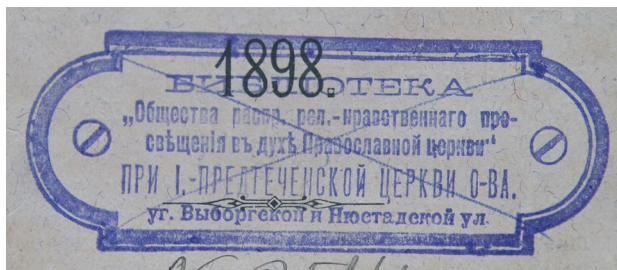 1898.
БИБЛІОТЕКА
„Общества распр. рел.-нравственнаго про-
свѣщенія въ духѣ Православной церкви“
ПРИ І.-ПРЕДТЕЧЕНСКОЙ ЦЕРКВИ О-ВА.
уг. Выборгской и Нюстадской ул.